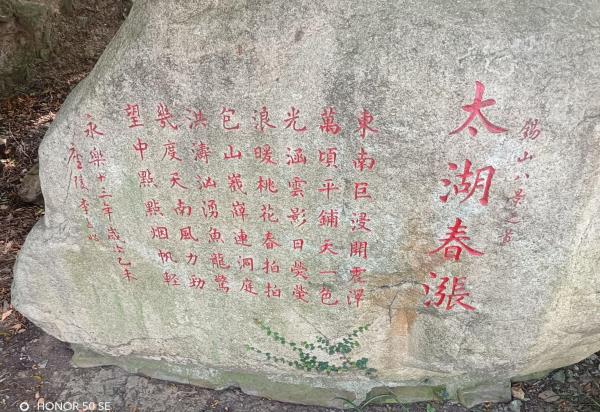 錫山八景之
太湖春漲
東南巨浸開震澤
萬頃平鋪天一色
光涵雲影日熒熒
浪暖桃花春拍拍
包山連洞庭
洪濤汹湧魚龍驚
幾度天南風力勁
望中點點烟帆輕
永樂十三年歲次乙未
廬陵李
HONOR 50 SE